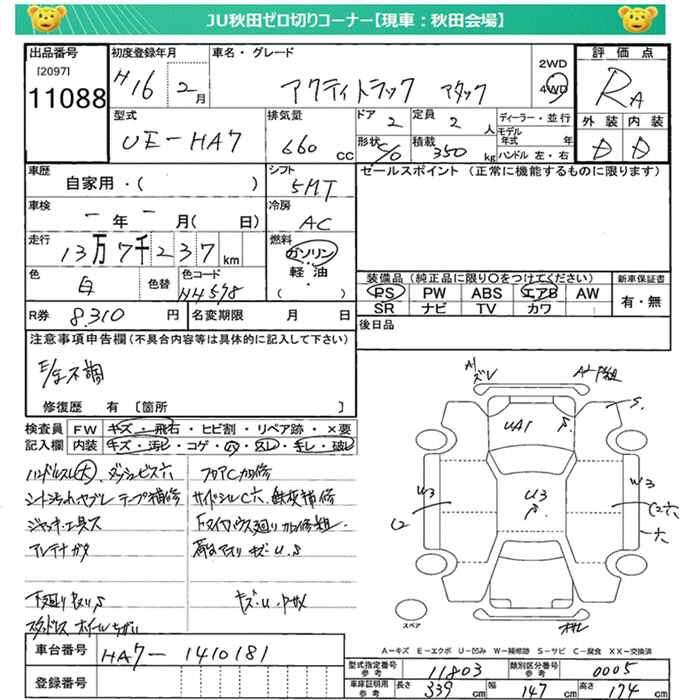 JU秋田ゼロ切りコーナー【現車：秋田会場】
出品番号
[2097]
11088
初度登録年月
H16 2月
車名・グレード
アクティトラック アタック
2WD
4WD
評価点
RA
外装 内装
D D
型式
UE-HA7
排気量
660 cc
ドア 2
定員 2 人
形状 C/O
積載 350 kg
ディーラー・並行
モデル年式 年
ハンドル 左・右
車歴
自家用・( )
シフト
5MT
セールスポイント (正常に機能するものに限ります)
車検
- 年 - 月( 日)
冷房
AC
走行
13万7千237km
燃料
ガソリン
軽・油
( )
色
白
色替
色コード
NH578
装備品 (純正品に限り○をつけてください)
新車保証書
PS PW ABS エアB AW
SR ナビ TV カワ
有・無
R券 8,310 円
名変期限 月 日
後日品
注意事項申告欄(不具合内容等は具体的に記入して下さい)
E/g不調
修復歴 有 [箇所 ]
検査員記入欄
FW キズ・飛石・ヒビ割・リペア跡・×要
内装 キズ・汚れ・コゲ・穴・スレ・キレ・破レ
ハンドルスレ大 ダッシュビス穴
フロアC大補修
シートシワ、ヤブレ テープ補修
サイドシルC穴 鉄板補修
ジャッキ工具欠
アンテナガタ
下廻りサビS
キズ・U
スタッドレス ホイールちがい
キズU
UA1
S
U3
S
W3
W3
C2
C2穴
穴
S
スペア
A-キズ E-エクボ U-凹み W-補修跡 S-サビ C-腐食 XX-交換済
車台番号
HA7-1410181
登録番号
型式指定番号 参考
11803
類別区分番号 参考
0005
車庫証明用 参考
長さ 339 cm
幅 147 cm
高さ 174 cm